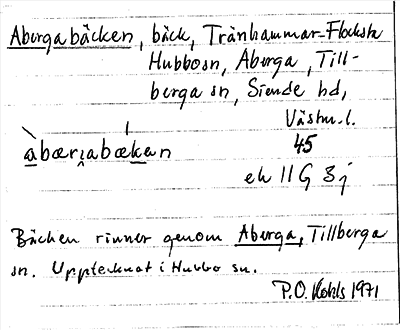 Abergabäcken, bäck, Tränhammar-Flocksta
Hubbo sn, Aberga, Till-
berga sn, Siende hd,
Västm. l.
àbærjabækən 45
ek 11 G 3 j
Bäcken rinner genom Aberga, Tillberga
sn. Upptecknat i Hubbo sn.
P.O. Kohls 1971